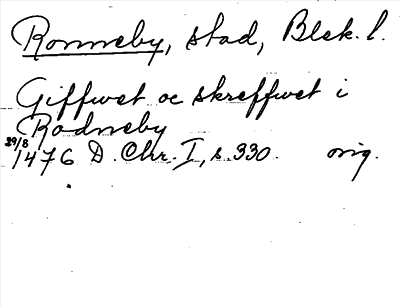 Ronneby, stad, Blek. l.
Giffwet oc skreffwet i
Rodneby
29/8
1476 D. Chr. I, s. 330. orig.